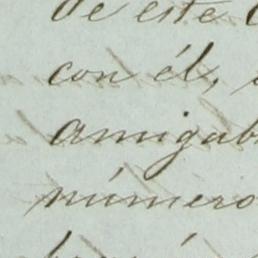 de este
con él,
amigab
número